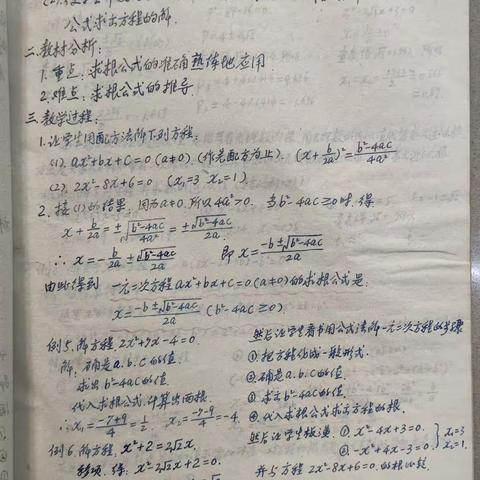 公式求出方程的解.
二.教材分析:
1.重点:求根公式的准确熟练地应用
2.难点:求根公式的推导.
三.教学过程:
1.让学生用配方法解下列方程:
(1). ax²+bx+c=0 (a≠0). (作为配方为止). (x+b/2a)²=b²-4ac/4a²
(2). 2x²-8x+6=0 (x₁=3 x₂=1)
2.接(1)的结果.因为a≠0.所以4a²>0.当b²-4ac≥0时.得
x+b/2a=±√b²-4ac/4a²=±√b²-4ac/2a
∴ x=-b/2a±√b²-4ac/2a 即 x=-b±√b²-4ac/2a
由此得到 一元二次方程ax²+bx+c=0(a≠0)的求根公式是:
x=-b±√b²-4ac/2a (b²-4ac≥0)
例5.解方程 2x²+7x-4=0.
解,确定a.b.c的值.
求出b²-4ac的值.
代入求根公式,计算出两根.
∴x₁=-7+9/4=1/2. x₂=-7-9/4=-4.
例6.解方程. x²+2=2√2x.
移项.得: x²-2√2x+2=0.
然后让学生看书用公式法解一元二次方程的步骤
①.把方程化成一般形式.
②.确定a.b.c的值.
③.求出b²-4ac的值.
④.代入求根公式求出方程的根.
然后让学生板演. ①. x²-4x+3=0. ②. -x²+4x-3=0. } x₁=3 x₂=1.
并与方程 2x²-8x+6=0.的根比较.